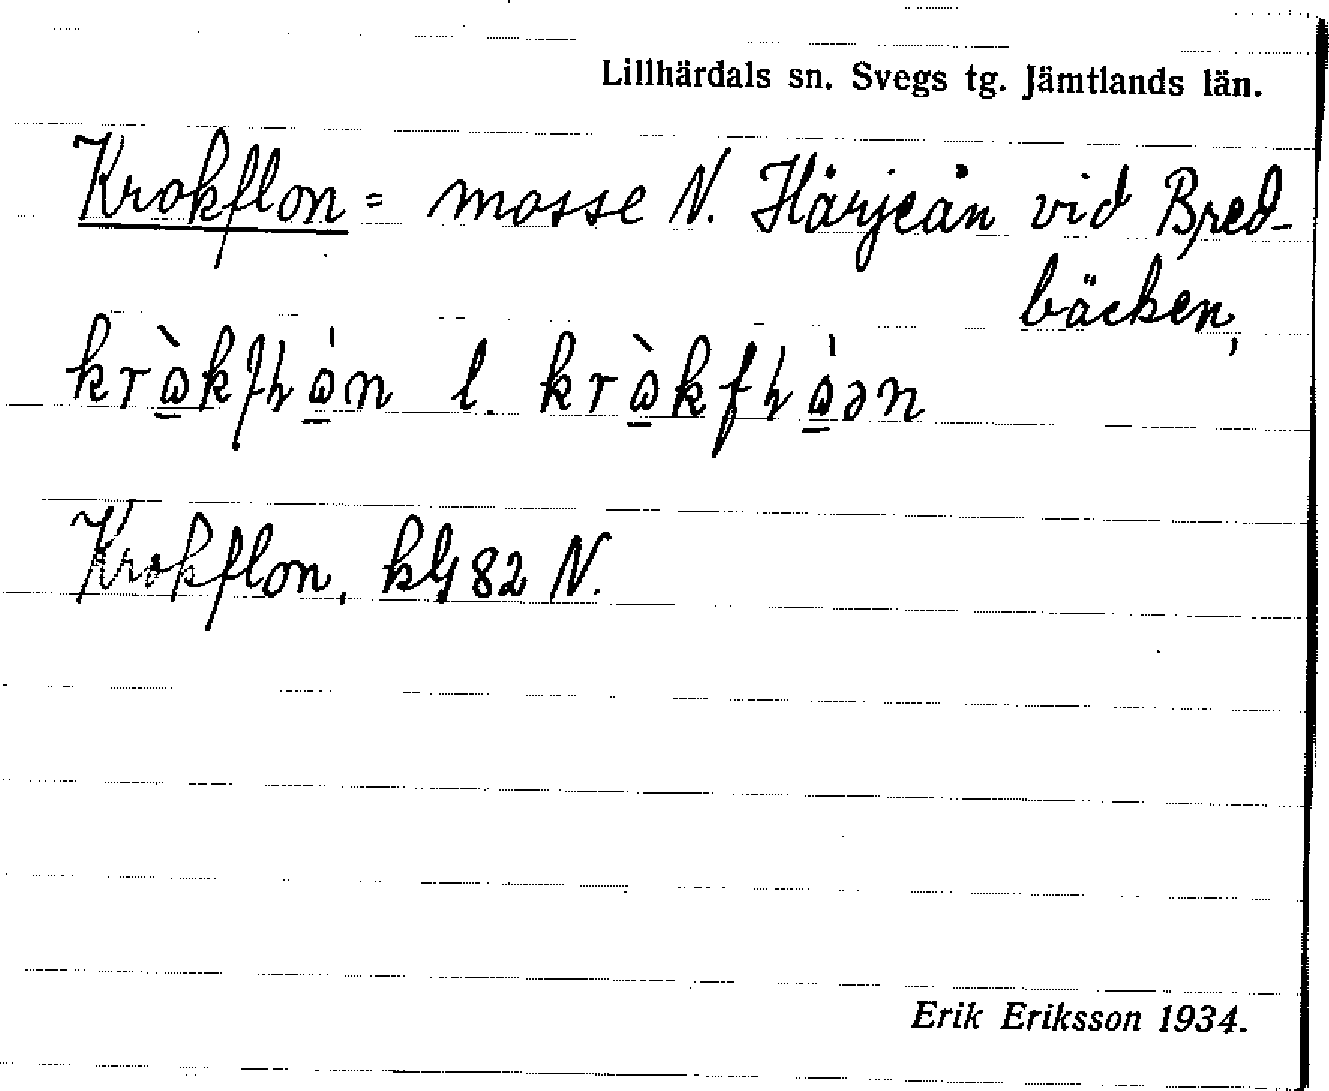 Lillhärdals sn. Svegs tg. Jämtlands län.
Krokflon = mosse N. Härjeån vid Bred-
bäcken,
l.
Krokflon, kbl 82 N.
Erik Eriksson 1934.